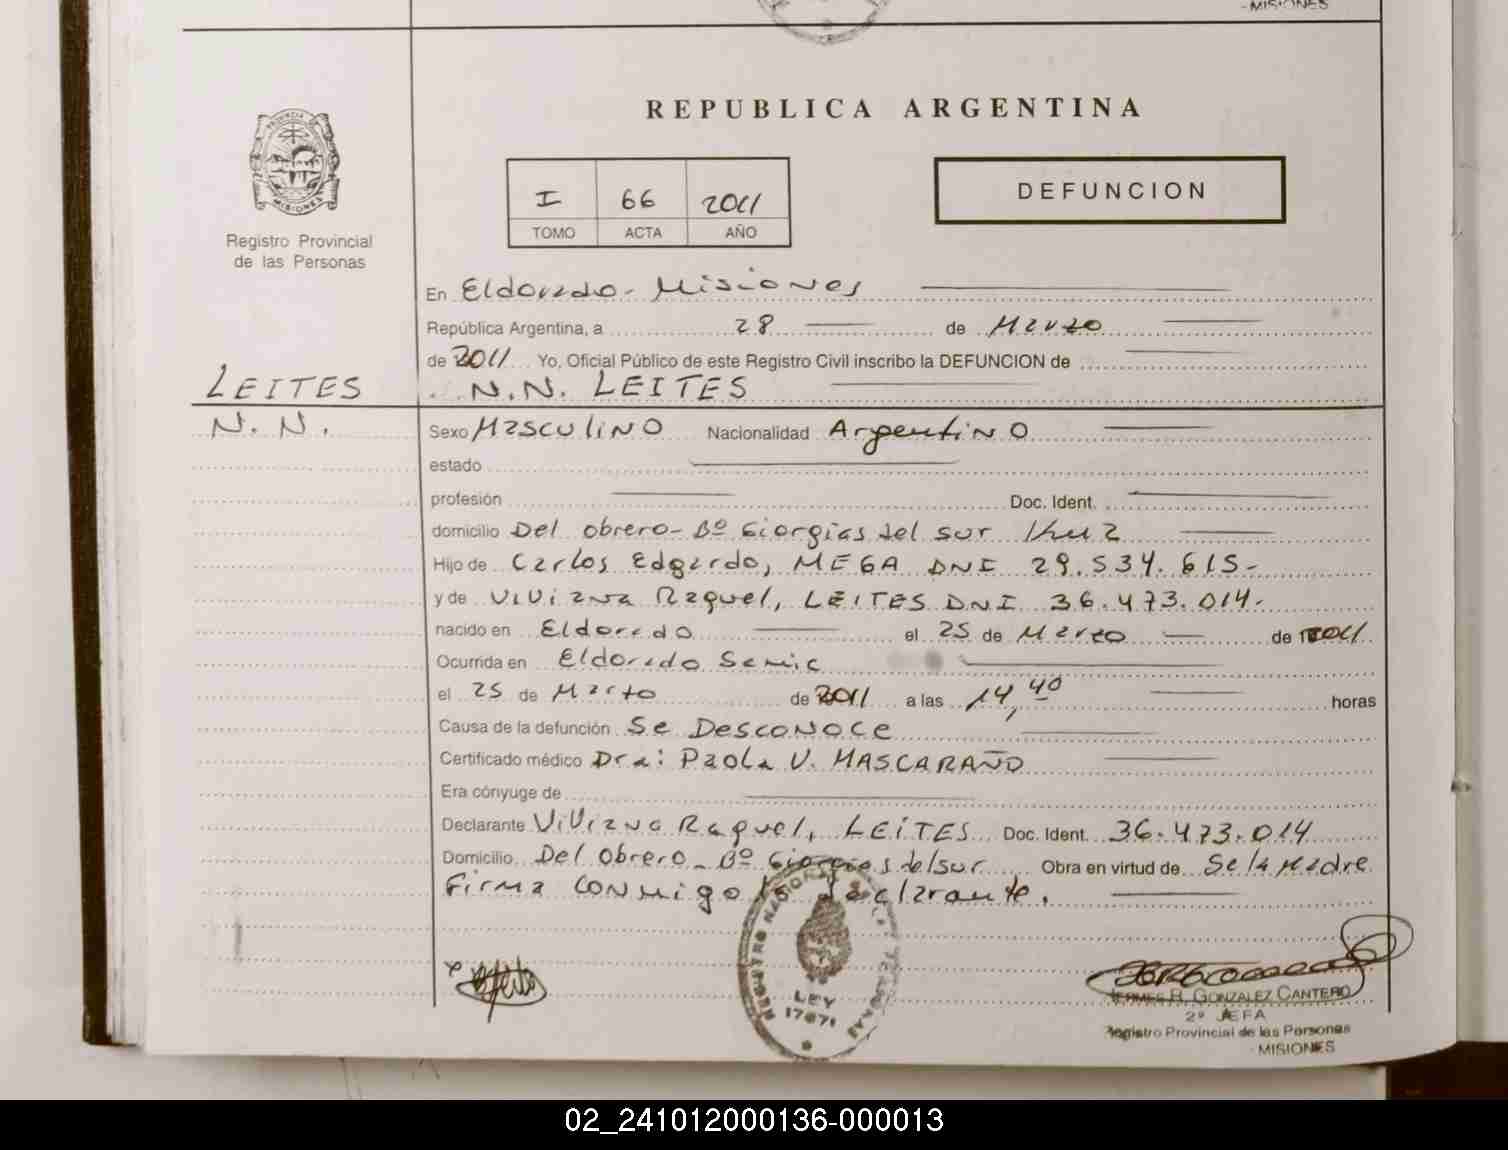 - MISIONES
REPUBLICA ARGENTINA
I 66 2011
TOMO ACTA AÑO
DEFUNCION
PROVINCIA DE
MISIONES
Registro Provincial
de las Personas
En Eldorado - Misiones
República Argentina, a 28 de Marzo
de 2011 Yo, Oficial Público de este Registro Civil inscribo la DEFUNCION de
N.N. LEITES
LEITES
N. N.
Sexo Masculino Nacionalidad Argentino
estado
profesión Doc. Ident.
domicilio Del obrero - Bº Giorgias del sur Km 2
Hijo de Carlos Edgardo, MEGA DNI 29.534.615-
y de Viviana Raquel, LEITES DNI 36.473.014-
nacido en Eldorado el 25 de Marzo de 2011
Ocurrida en Eldorado Samic
el 25 de Marzo de 2011 a las 14,40 horas
Causa de la defunción Se Desconoce
Certificado médico Dra: Paola V. MASCARAÑO
Era cónyuge de
Declarante Viviana Raquel, LEITES Doc. Ident. 36.473.014
Domicilio Del obrero - Bº Giorgias del sur Obra en virtud de Se la Madre
Firma conmigo la declarante.
LEY
17671
HERMES R. GONZALEZ CANTERO
2º JEFA
Registro Provincial de las Personas
- MISIONES
02_241012000136-000013